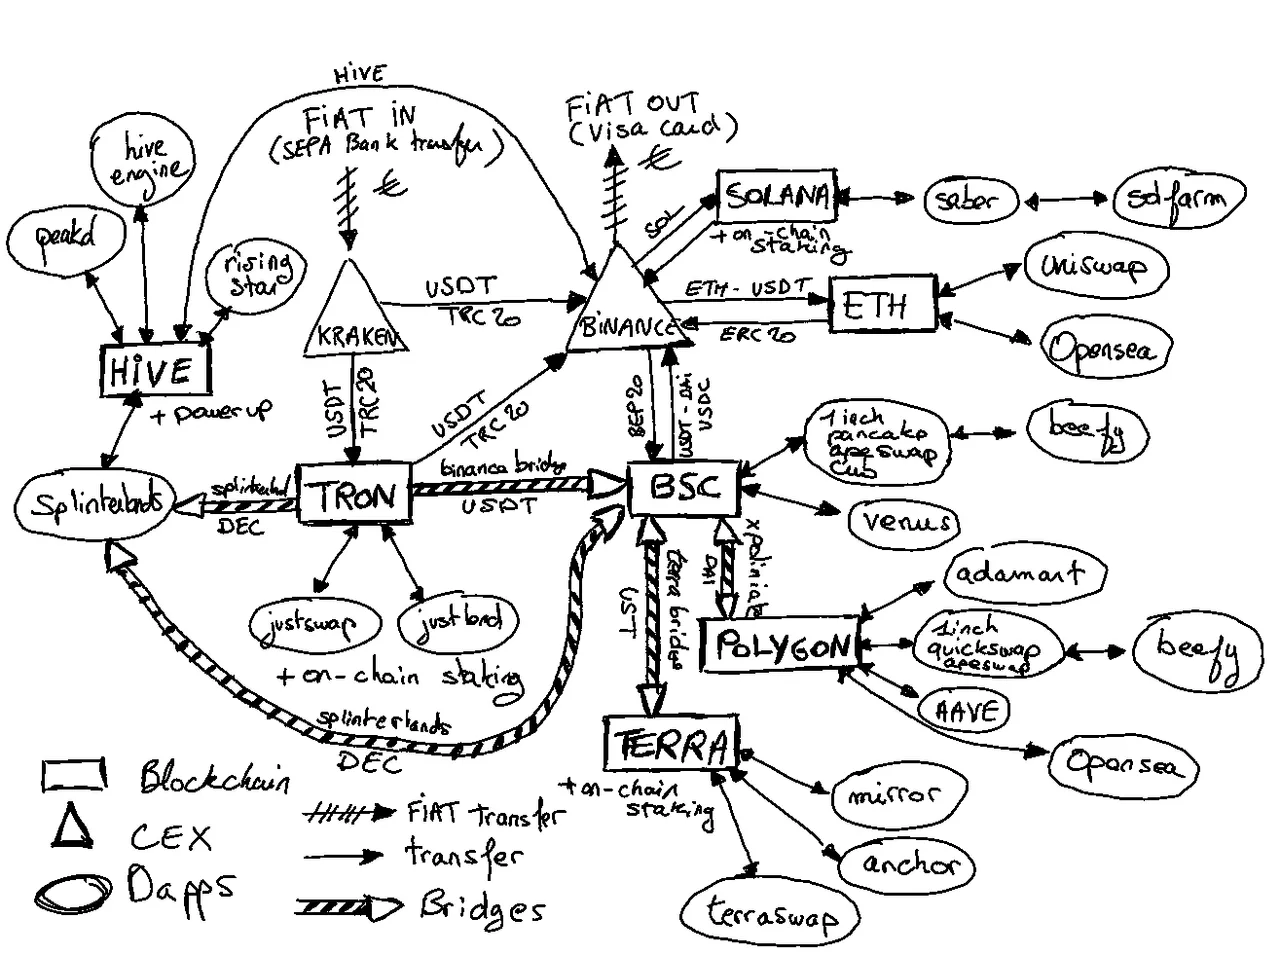 HIVE
FIAT IN
(SEPA Bank transfer)
€
FIAT OUT
(Visa card)
€
hive
engine
peakd
rising
star
HIVE
+ power up
KRAKEN
USDT
TRC20
BINANCE
SOL
SOLANA
+ on-chain
staking
saber
solfarm
ETH - USDT
ERC20
ETH
Uniswap
Opensea
USDT
TRC20
USDT
TRC20
BEP20
USDT - DAI
USDC
1inch
pancake
apeswap
cub
beefy
Splinterlands
splinterland
DEC
TRON
binance bridge
USDT
BSC
venus
justswap
justlend
+ on-chain staking
terra bridge
UST
xpollinate
DAI
POLYGON
adamant
1inch
quickswap
apeswap
beefy
AAVE
Opensea
splinterlands
DEC
TERRA
+ on-chain
staking
mirror
anchor
terraswap
Blockchain
CEX
Dapps
FIAT transfer
transfer
Bridges